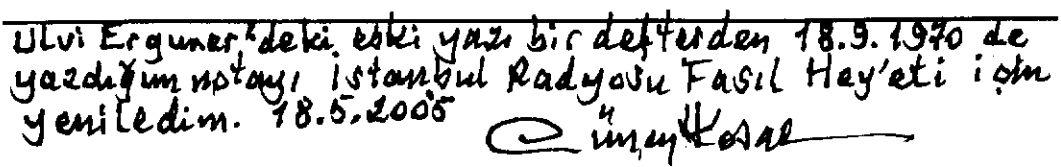 Ulvi Erguner'deki eski yazı bir defterden 18.9.1970 de
yazdığım notayı İstanbul Radyosu Fasıl Hey'eti için
yeniledim. 18.5.2005
Cüneyt Kosal